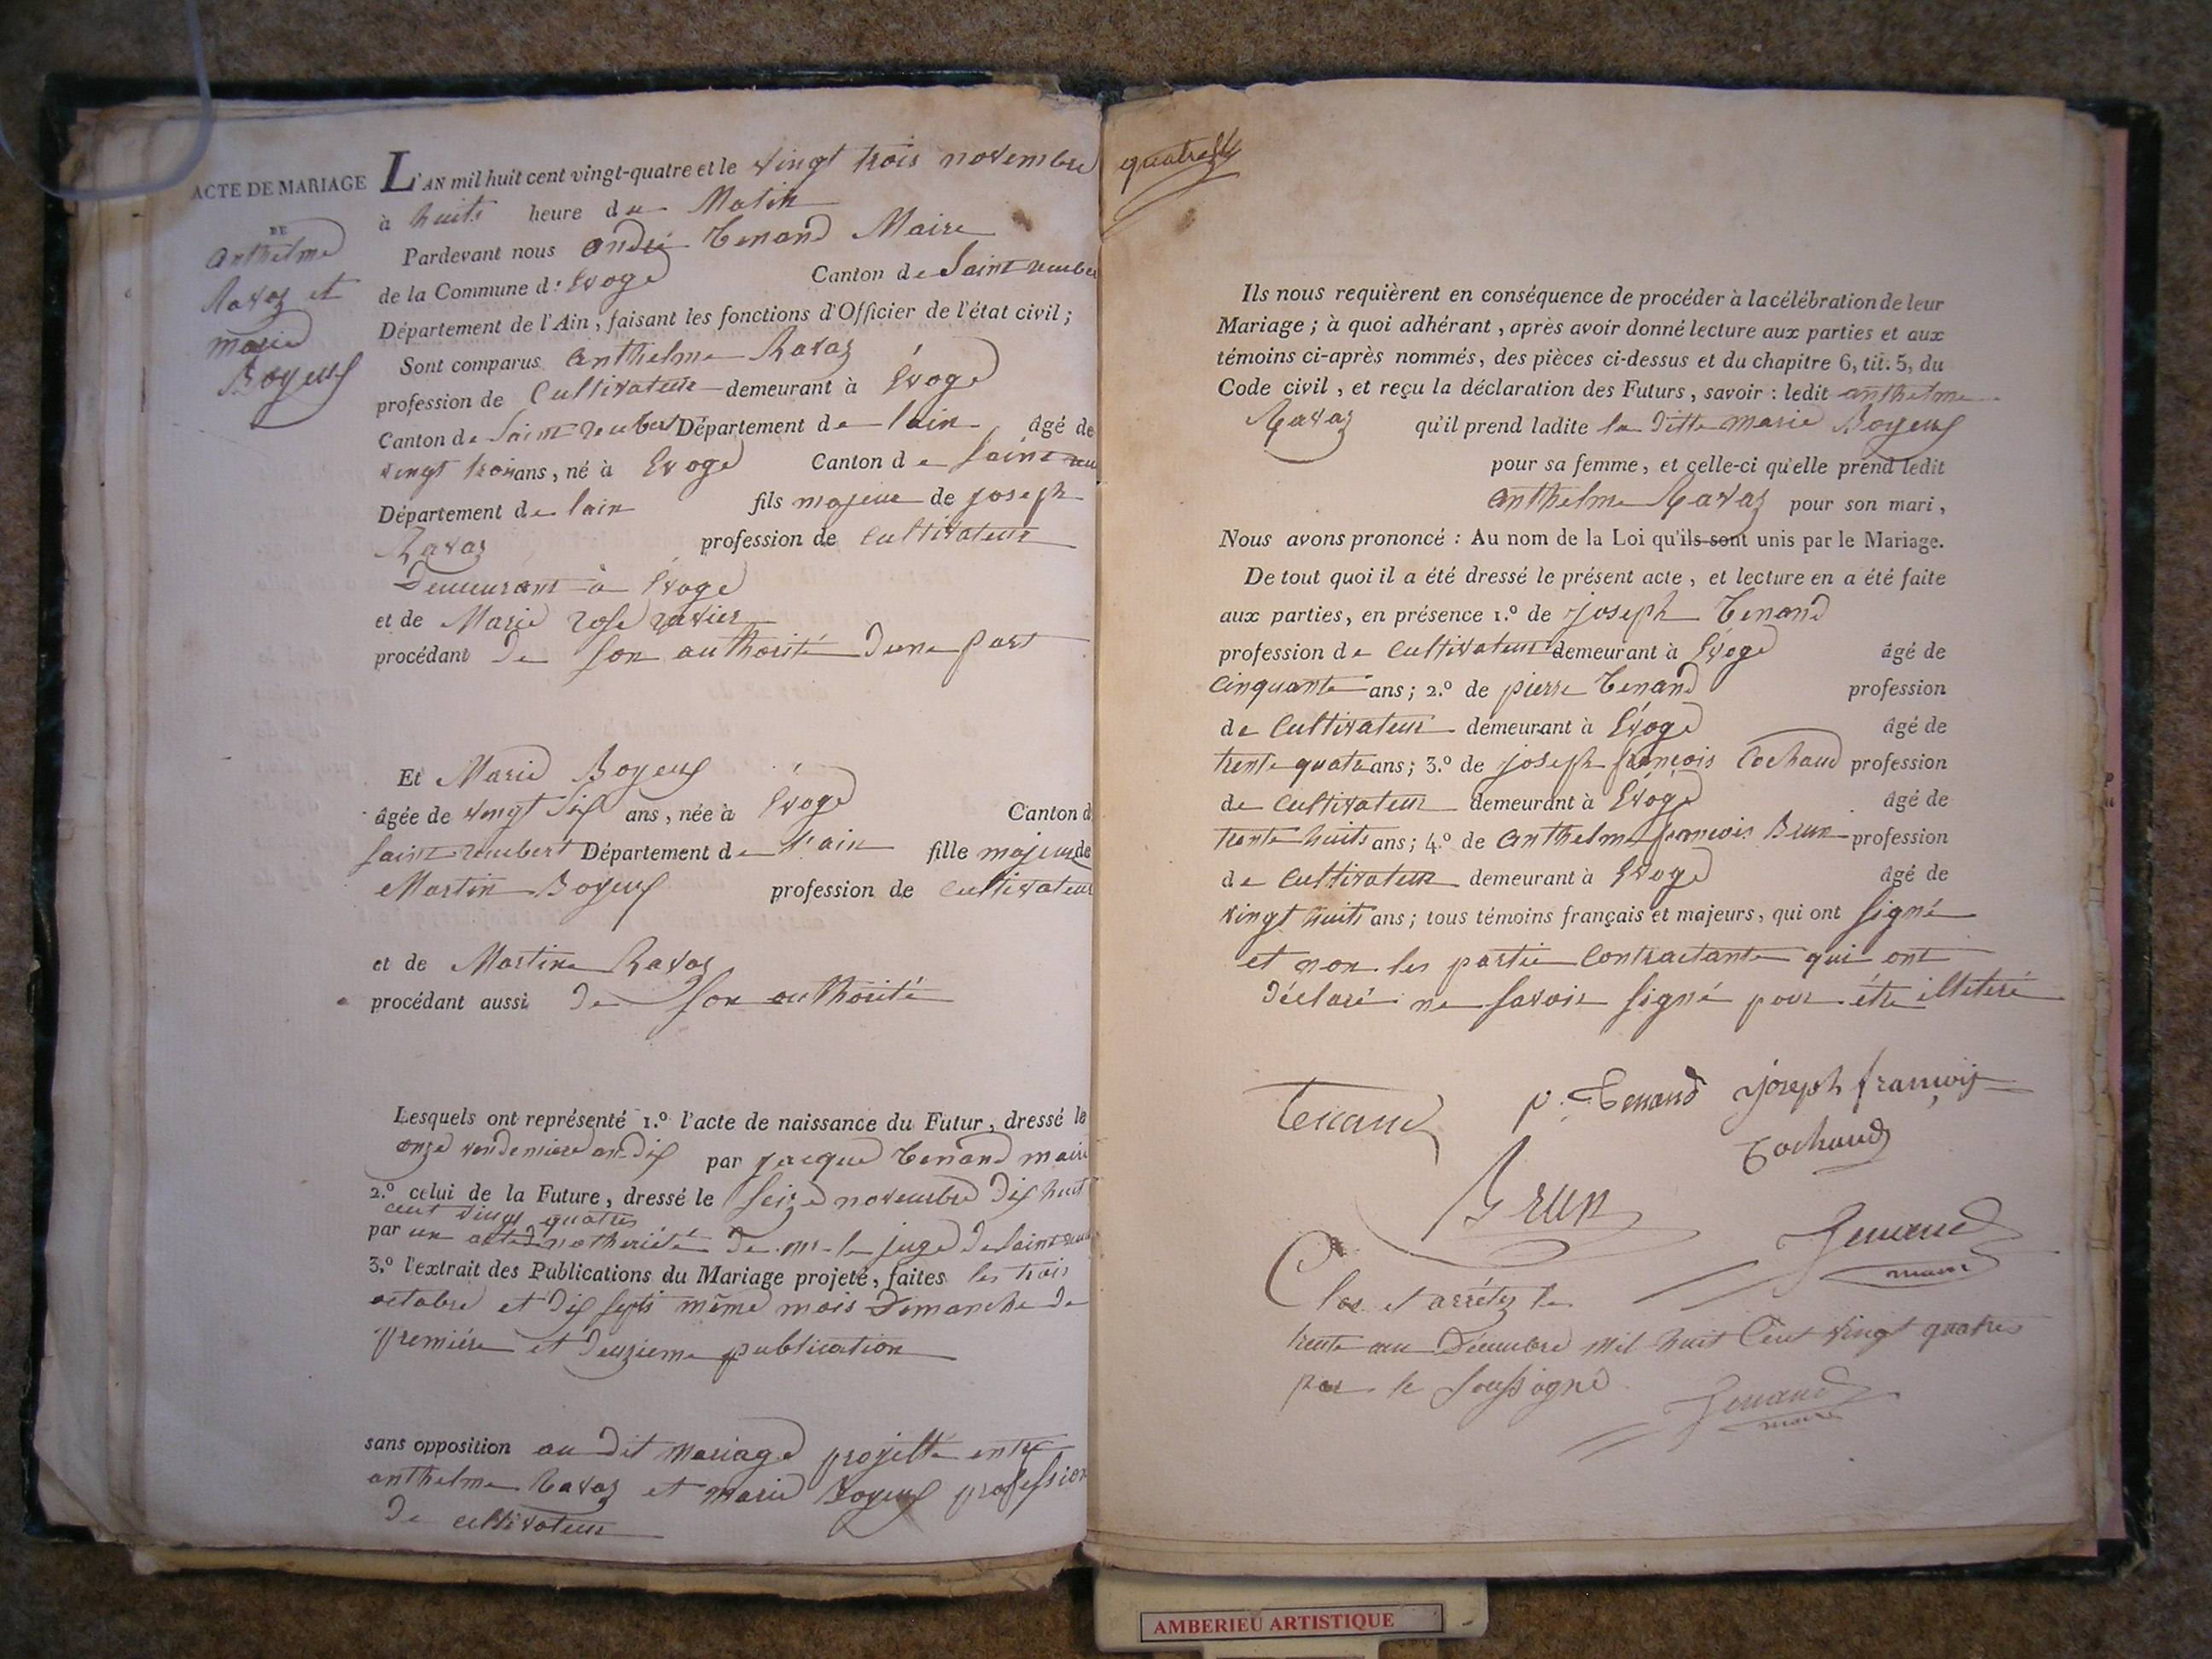 ACTE DE MARIAGE
DE
anthelme
Ravaz et
marie
Boyeux
L'AN mil huit cent vingt-quatre et le vingt trois novembre
à huits heure du Matin
Pardevant nous andré tenand Maire
de la Commune d' Evoge Canton de Saint rember
Département de l'Ain, faisant les fonctions d'Officier de l'état civil;
Sont comparus anthelme Ravaz
profession de Cultivateur demeurant à Evoge
Canton de Saint rembert Département de lain âgé de
vingt trois ans, né à Evoge Canton de Saint
Département de lain fils majeur de joseph
Ravaz profession de cultivateur
Demeurant à Evoge
et de Marie rose ravier
procédant de son authorité dune part
Et Marie Boyeux
âgée de vingt six ans, née à Evoge Canton d
saint rembert Département de l'ain fille majeur de
Martin Boyeux profession de cultivateur
et de Martine Ravaz
procédant aussi de son authorité
Lesquels ont représenté 1.º l'acte de naissance du Futur, dressé le
onze vendemiere an dix par jacque tenand maire
2.º celui de la Future, dressé le seize novembre dix huit
cent vingt quatres
par un acte de notheriété de mr le juge de saint
3.º l'extrait des Publications du Mariage projeté, faites les trois
octobre et dix septs même mois Dimanche de
premiére et deuzieme publication
sans opposition au dit mariage projetté entre
anthelme Ravaz et marie Boyeux profession
de cultivateur
quatres
Ils nous requièrent en conséquence de procéder à la célébration de leur
Mariage; à quoi adhérant, après avoir donné lecture aux parties et aux
témoins ci-après nommés, des pièces ci-dessus et du chapitre 6, tit. 5, du
Code civil, et reçu la déclaration des Futurs, savoir: ledit anthelme
Ravaz qu'il prend ladite la ditte marie Boyeux
pour sa femme, et celle-ci qu'elle prend ledit
anthelme Ravaz pour son mari,
Nous avons prononcé: Au nom de la Loi qu'ils sont unis par le Mariage.
De tout quoi il a été dressé le présent acte, et lecture en a été faite
aux parties, en présence 1.º de joseph tenand
profession de cultivateur demeurant à Evoge âgé de
cinquante ans; 2.º de pierre tenand profession
de cultivateur demeurant à Evoge âgé de
trente quatre ans; 3.º de joseph françois Cochaud profession
de cultivateur demeurant à Evoge âgé de
trente huits ans; 4.º de anthelme françois Brun profession
de cultivateur demeurant à Evoge âgé de
vingt huits ans; tous témoins français et majeurs, qui ont signé
et non les partie contractante qui ont
déclaré ne savoir signé pour être illeteré
tenand p. tenand joseph françois
Cochaud
Brun
tenand
maire
Clos et arrétez le
trente un Décembre mil huit Cent vingt quatres
par le soussigné
tenand
maire
AMBERIEU ARTISTIQUE